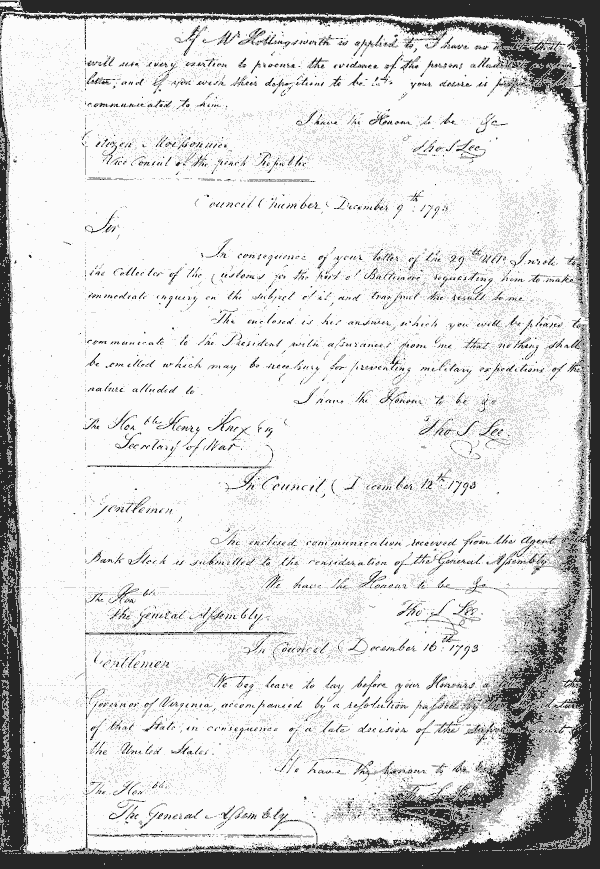 If Mr Hollingsworth is applied to, I have no that
will use every exertion to procure the evidence of the persons
letter, and if you wish their depositions to be your desire is
communicated to him.
I have the Honour to be &c
Tho S Lee
Citizen Moissonnier
Vice Consul of the french Republic
Council Chamber December 9th 1793
Sir,
In consequence of your letter of the 29th Ulto I wrote to
the Collector of the Customs for the Port of Baltimore, requesting him to make
immediate inquiry on the subject of it, and transmit the result to me
The enclosed is his answer, which you will be pleased to
communicate to the President, with assurances from me that nothing shall
be omitted which may be necessary for preventing military expeditions of the
nature alluded to
I have the Honour to be &c
The Honble Henry Knox Esq
Tho S Lee
Secretary of War.
In Council, December 12th 1793
Gentlemen,
The enclosed communication received from the Agent
Bank Stock is submitted to the consideration of the General Assembly
We have the Honour to be &c
The Honble
The General Assembly.
Tho S Lee
In Council December 16th 1793
Gentlemen
We beg leave to lay before your Honours a
Governor of Virginia, accompanied by a resolution passed by the
of that State, in consequence of a late decision of the Supreme Court of
the United States.
We have the honour to be &c
The Honble
The General Assembly